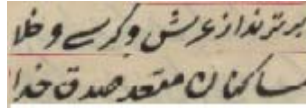 برترند از عرش و کرسے و خلا
ساکنان مقعد صدق خدا